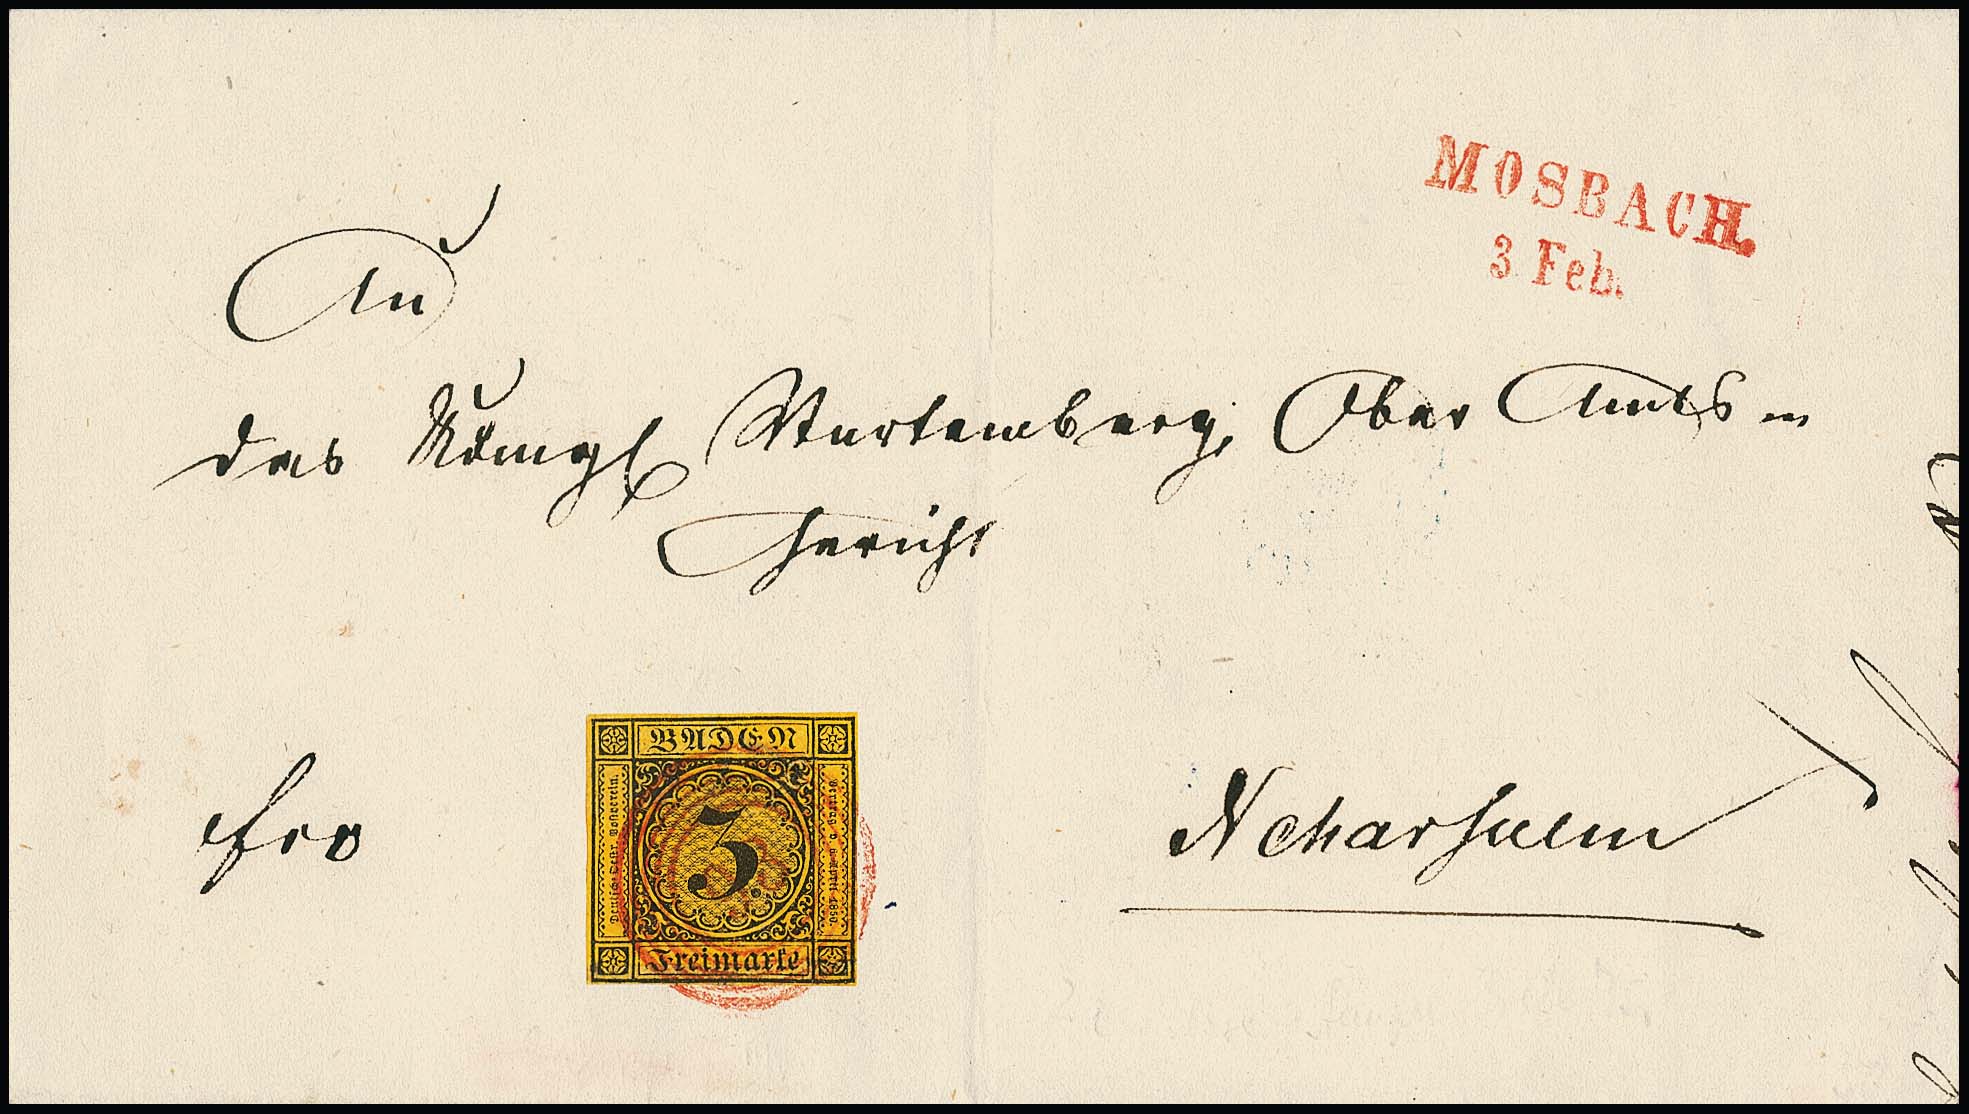 MOSBACH.
3 Feb.
An
das Königl Würtemberg. Ober Amts
Gericht
fro
BADEN
Deutsch-Oestr. Postverein.
3.
Vertrag v. 6 April 1850.
Freimarke
Nekarsulm